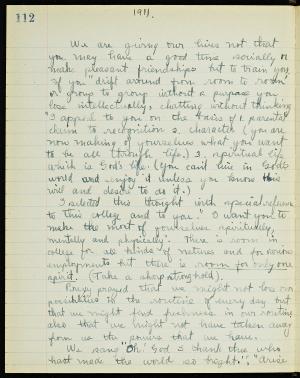 112
1911.
We are giving our lives not that
you may have a good time socially or
make pleasant friendships but to train you
if you "drift around from room to room
or group to group without a purpose you
lose intellectually, chatting without thinking
"I appeal to you on the basis of a parents'
claim to recognition 2. character (you are
now making of yourselves what you want
to be all through life.) 3. spiritual life
which is God's life (you can't live in God's
world and enjoy it unless you know His
will and desire to do it.)
I selected this thought with special reference
to this college and to you." I want you to
make the most of yourselves spiritually,
mentally and physically. There is room in
college for all kinds of natures and for various
employments but there is room for only one
spirit. (Take a sharp stronghold).
prayed that we might not lose our
possibilities in the routine of every day but
that we might find freshness in our routine
also that we might not have taken away
from us the powers that we have.
We sang "Oh! God I thank thee who
hast made the world so bright"; "Arise